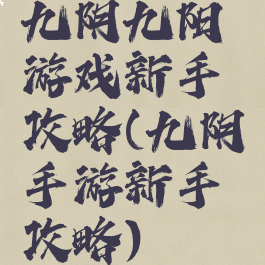 九阴九阳
游戏新手
攻略(九阴
手游新手
攻略)